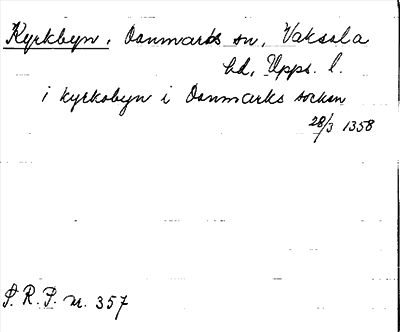 Kyrkbyn, Danmarks sn, Vaksala
hd, Upps. l.
i kyrkobyn i Danmarks sockan
28/3 1358
S. R. P. nr. 357